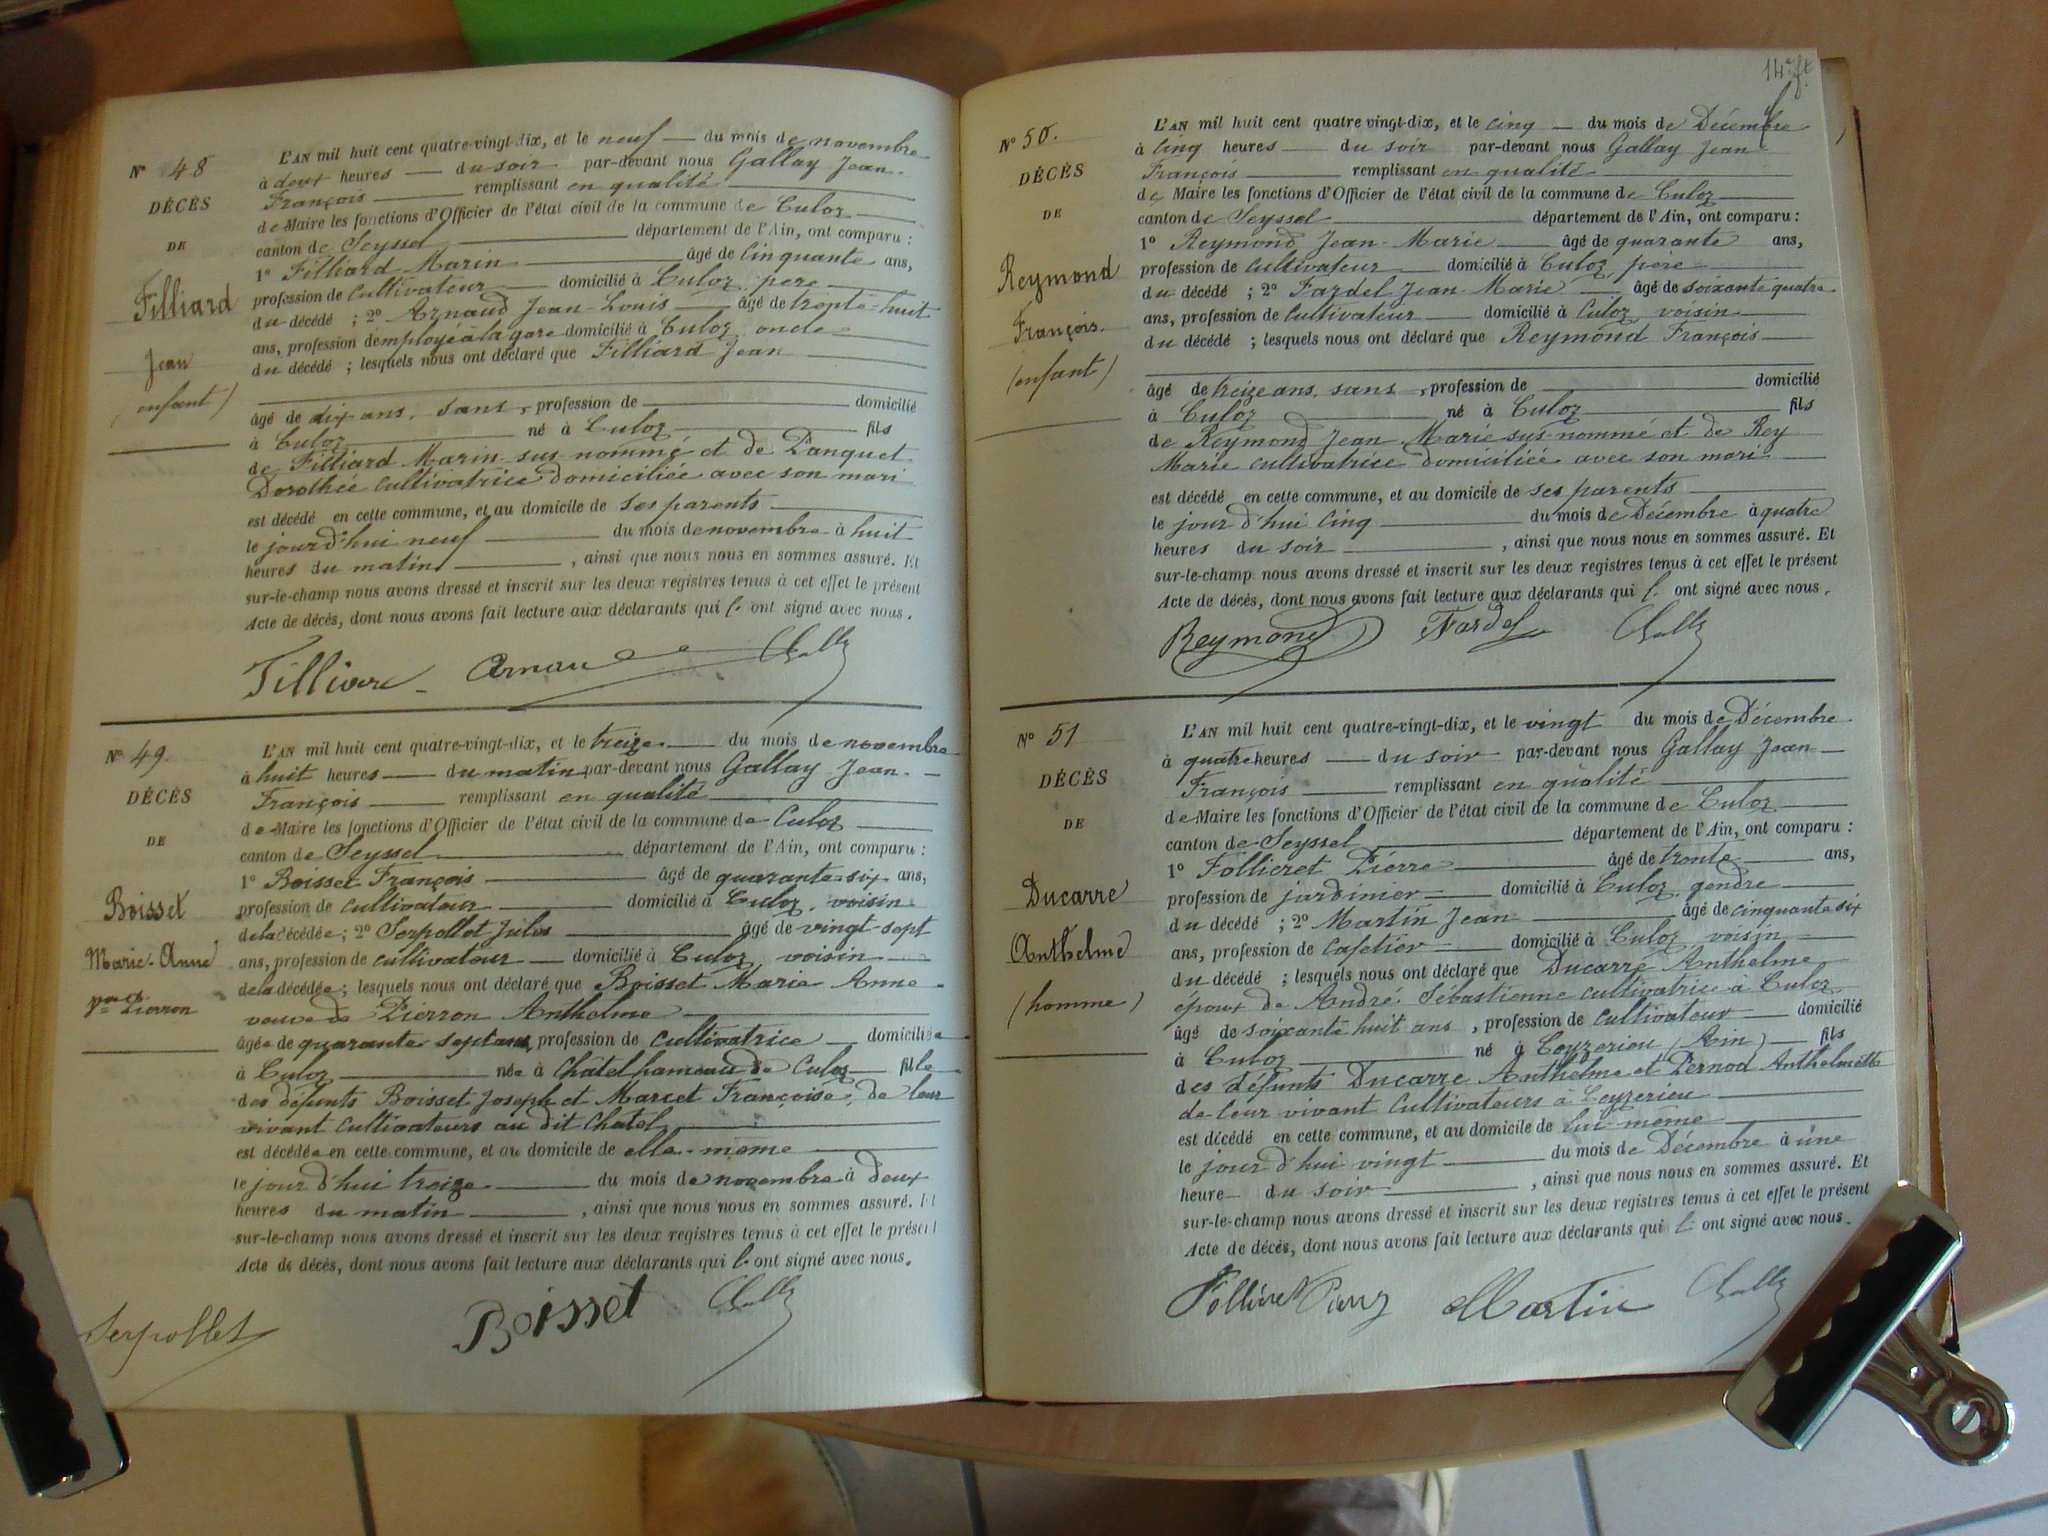 N° 48
DÉCÈS
DE
Filliard
Jean
(enfant)
L'AN mil huit cent quatre-vingt-dix, et le neuf du mois de novembre
à deux heures du soir par-devant nous Gallay Jean-
François remplissant en qualité
de Maire les fonctions d'Officier de l'état civil de la commune de Culoz
canton de Seyssel département de l'Ain, ont comparu :
1° Filliard Marin âgé de Cinquante ans,
profession de Cultivateur domicilié à Culoz, père
du décédé ; 2° Arnaud Jean-Louis âgé de trente-huit
ans, profession d'employé à la gare domicilié à Culoz oncle
du décédé ; lesquels nous ont déclaré que Filliard Jean
âgé de dix ans, sans, profession de domicilié
à Culoz né à Culoz fils
de Filliard Marin sus-nommé et de Panquet
Dorothée cultivatrice domiciliée avec son mari
est décédé en cette commune, et au domicile de ses parents
le jourd'hui neuf du mois de novembre à huit
heures du matin, ainsi que nous nous en sommes assuré. Et
sur-le-champ nous avons dressé et inscrit sur les deux registres tenus à cet effet le présent
Acte de décès, dont nous avons fait lecture aux déclarants qui l. ont signé avec nous.
N° 49.
DÉCÈS
DE
Boisset
Marie-Anne
Vve Pierron
L'AN mil huit cent quatre-vingt-dix, et le treize du mois de novembre
à huit heures du matin par-devant nous Gallay Jean-
François remplissant en qualité
de Maire les fonctions d'Officier de l'état civil de la commune de Culoz
canton de Seyssel département de l'Ain, ont comparu :
1° Boisset François âgé de quarante-six ans,
profession de cultivateur domicilié à Culoz, voisin
de la décédée ; 2° Serpollet Jules âgé de vingt-sept
ans, profession de cultivateur domicilié à Culoz, voisin
de la décédée ; lesquels nous ont déclaré que Boisset Marie Anne
veuve de Pierron Anthelme
âgée de quarante sept ans, profession de cultivatrice domiciliée
à Culoz née à Châtel hameau de Culoz fille
des défunts Boisset Joseph et Marcet Françoise, de leur
vivant cultivateurs au dit Chatel
est décédée en cette commune, et au domicile de elle-même
le jourd'hui treize du mois de novembre à deux
heures du matin, ainsi que nous nous en sommes assuré. Et
sur-le-champ nous avons dressé et inscrit sur les deux registres tenus à cet effet le présent
Acte de décès, dont nous avons fait lecture aux déclarants qui l. ont signé avec nous.
Serpollet Boisset
N° 50.
DÉCÈS
DE
Reymond
François.
(enfant)
L'AN mil huit cent quatre-vingt-dix, et le cinq du mois de Décembre
à Cinq heures du soir par-devant nous Gallay Jean-
François remplissant en qualité
de Maire les fonctions d'Officier de l'état civil de la commune de Culoz
canton de Seyssel département de l'Ain, ont comparu :
1° Reymond Jean-Marie âgé de quarante ans,
profession de cultivateur domicilié à Culoz, père
du décédé ; 2° Fardel Jean-Marie âgé de soixante quatre
ans, profession de Cultivateur domicilié à Culoz, voisin
du décédé ; lesquels nous ont déclaré que Reymond François
âgé de treize ans, sans, profession de domicilié
à Culoz né à Culoz fils
de Reymond Jean Marie sus-nommé et de Rey
Marie cultivatrice domiciliée avec son mari
est décédé en cette commune, et au domicile de ses parents
le jourd'hui Cinq du mois de Décembre à quatre
heures du soir, ainsi que nous nous en sommes assuré. Et
sur-le-champ nous avons dressé et inscrit sur les deux registres tenus à cet effet le présent
Acte de décès, dont nous avons fait lecture aux déclarants qui l. ont signé avec nous.
Reymond Fardel
N° 51
DÉCÈS
DE
Ducarre
Anthelme
(homme)
L'AN mil huit cent quatre-vingt-dix, et le vingt du mois de Décembre
à quatre heures du soir par-devant nous Gallay Jean-
François remplissant en qualité
de Maire les fonctions d'Officier de l'état civil de la commune de Culoz
canton de Seyssel département de l'Ain, ont comparu :
1° Follieret Pierre âgé de trente ans,
profession de jardinier domicilié à Culoz, gendre
du décédé ; 2° Martin Jean âgé de cinquante six
ans, profession de cafetier domicilié à Culoz voisin
du décédé ; lesquels nous ont déclaré que Ducarre Anthelme
époux de André Sébastienne cultivatrice à Culoz
âgé de soixante huit ans, profession de cultivateur domicilié
à Culoz né à Ceyzerieu (Ain) fils
des défunts Ducarre Anthelme et Pernod Anthelmette
de leur vivant Cultivateurs à Ceyzerieu
est décédé en cette commune, et au domicile de lui même
le jourd'hui vingt du mois de Décembre à une
heure du soir, ainsi que nous nous en sommes assuré. Et
sur-le-champ nous avons dressé et inscrit sur les deux registres tenus à cet effet le présent
Acte de décès, dont nous avons fait lecture aux déclarants qui l. ont signé avec nous.
Martin